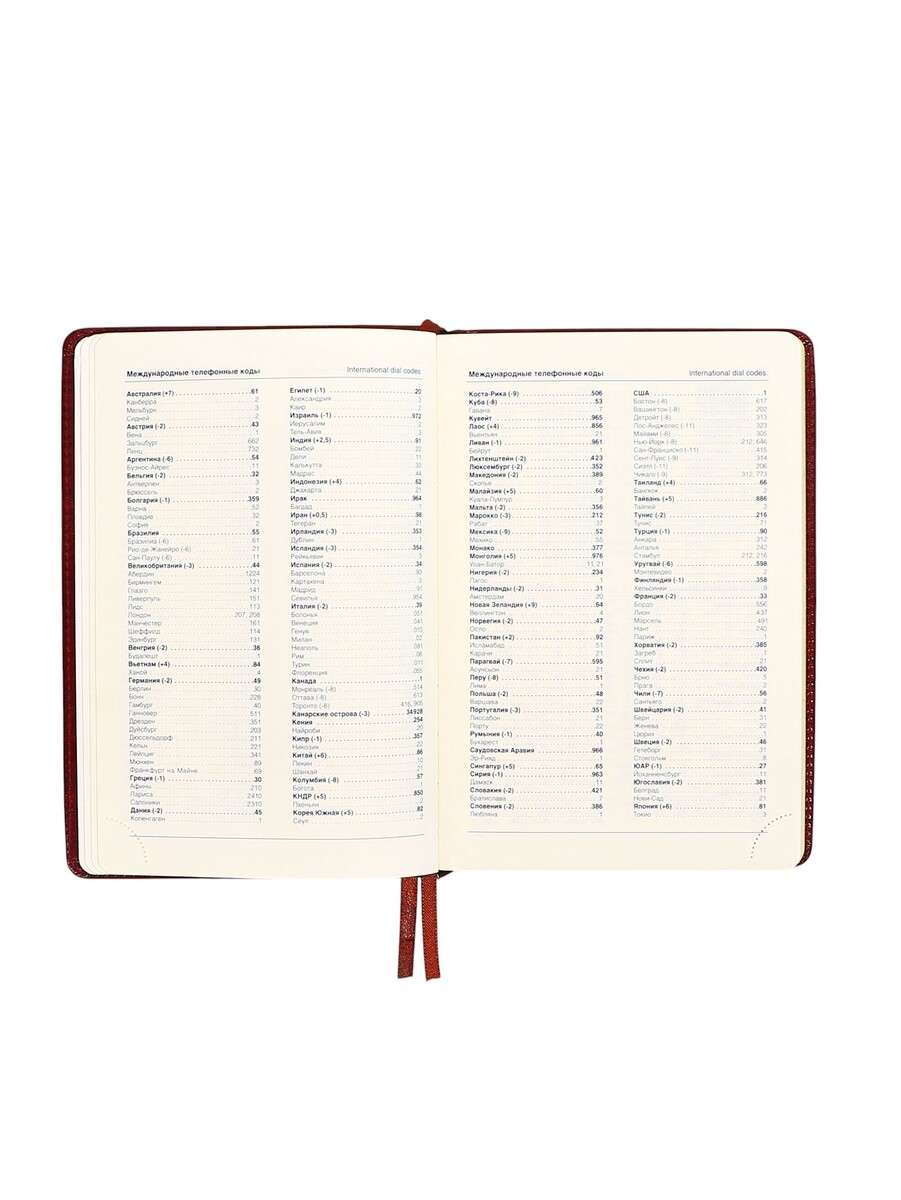 Международные телефонные коды International dial codes
Австралия (+7) .61
Канберра .2
Мельбурн .3
Сидней .2
Австрия (-2) .43
Вена .1
Зальцбург 662
Линц 732
Аргентина (-6) .54
Буэнос-Айрес .11
Бельгия (-2) .32
Антверпен .3
Брюссель .2
Болгария (-1) .359
Варна 52
Пловдив 32
София 2
Бразилия .55
Бразилиа (-6) 61
Рио-де-Жанейро (-6) 21
Сан-Паулу (-6) .11
Великобритания (-3) .44
Абердин .1224
Бирмингем .121
Глазго 141
Ливерпуль .151
Лидс .113
Лондон 207, 208
Манчестер 161
Шеффилд .114
Эдинбург .131
Венгрия (-2) .36
Будапешт .1
Вьетнам (+4) .84
Ханой 4
Германия (-2) .49
Берлин 30
Бонн 228
Гамбург 40
Ганновер 511
Дрезден .351
Дуйсбург 203
Дюссельдорф 211
Кельн .221
Лейпциг .341
Мюнхен .89
Франкфурт на Майне .69
Греция (-1) .30
Афины .210
Лариса 2410
Салоники 2310
Дания (-2) .45
Копенгаген .1
Египет (-1) .20
Александрия .3
Каир .2
Израиль (-1) .972
Иерусалим .2
Тель-Авив .3
Индия (+2,5) .91
Бомбей 22
Дели .11
Калькутта .33
Мадрас 44
Индонезия (+4) .62
Джакарта .21
Ирак .964
Багдад .1
Иран (+0,5) .98
Тегеран .21
Ирландия (-3) .353
Дублин .1
Исландия (-3) .354
Рейкьявик .5
Испания (-2) .34
Барселона .93
Картахена .5
Мадрид .91
Севилья .954
Италия (-2) .39
Болонья .051
Венеция .041
Генуя .010
Милан .02
Неаполь .081
Рим .06
Турин .011
Флоренция .055
Канада .1
Монреаль (-8) .514
Оттава (-8) .613
Торонто (-8) 416, 905
Канарские острова (-3) 34928
Кения .254
Найроби .20
Кипр (-1) .357
Никозия .22
Китай (+6) .86
Пекин .10
Шанхай .21
Колумбия (-8) .57
Богота .1
КНДР (+5) .850
Пхеньян .2
Корея Южная (+5) .82
Сеул .2
Международные телефонные коды International dial codes
Коста-Рика (-9) .506
Куба (-8) .53
Гавана .7
Кувейт .965
Лаос (+4) .856
Вьентьян .21
Ливан (-1) .961
Бейрут .1
Лихтенштейн (-2) .423
Люксембург (-2) .352
Македония (-2) .389
Скопье .2
Малайзия (+5) .60
Куала-Лумпур .3
Мальта (-2) .356
Марокко (-3) .212
Рабат .37
Мексика (-9) .52
Мехико .55
Монако .377
Монголия (+5) .976
Улан-Батор 11, 21
Нигерия (-2) .234
Лагос .1
Нидерланды (-2) .31
Амстердам .20
Новая Зеландия (+9) .64
Веллингтон .4
Норвегия (-2) .47
Осло .2
Пакистан (+2) .92
Исламабад .51
Карачи .21
Парагвай (-7) .595
Асунсьон .21
Перу (-8) .51
Лима .1
Польша (-2) .48
Варшава .22
Португалия (-3) .351
Лиссабон .21
Порту .22
Румыния (-1) .40
Бухарест .1
Саудовская Аравия .966
Эр-Рияд .1
Сингапур (+5) .65
Сирия (-1) .963
Дамаск .11
Словакия (-2) .421
Братислава .7
Словения (-2) .386
Любляна .1
США .1
Бостон (-8) 617
Вашингтон (-8) 202
Детройт (-8) .313
Лос-Анджелес (-11) .323
Майами (-8) .305
Нью-Йорк (-8) 212, 646
Сан-Франциско (-11) .415
Сент-Луис (-9) .314
Сиэтл (-11) .206
Чикаго (-9) 312, 773
Таиланд (+4) .66
Бангкок .2
Тайвань (+5) .886
Тайпей .2
Тунис (-2) .216
Тунис .71
Турция (-1) .90
Анкара .312
Анталья .242
Стамбул 212, 216
Уругвай (-6) .598
Монтевидео .2
Финляндия (-1) .358
Хельсинки .9
Франция (-2) .33
Бордо 556
Лион .437
Марсель .491
Нант .240
Париж .1
Хорватия (-2) .385
Загреб .1
Сплит .21
Чехия (-2) .420
Брно .5
Прага .2
Чили (-7) .56
Сантьяго .2
Швейцария (-2) .41
Берн .31
Женева .22
Цюрих .1
Швеция (-2) .46
Гетеборг .31
Стокгольм .8
ЮАР (-1) .27
Йоханненсбург .11
Югославия (-2) .381
Белград .11
Нови-Сад .21
Япония (+6) .81
Токио .3